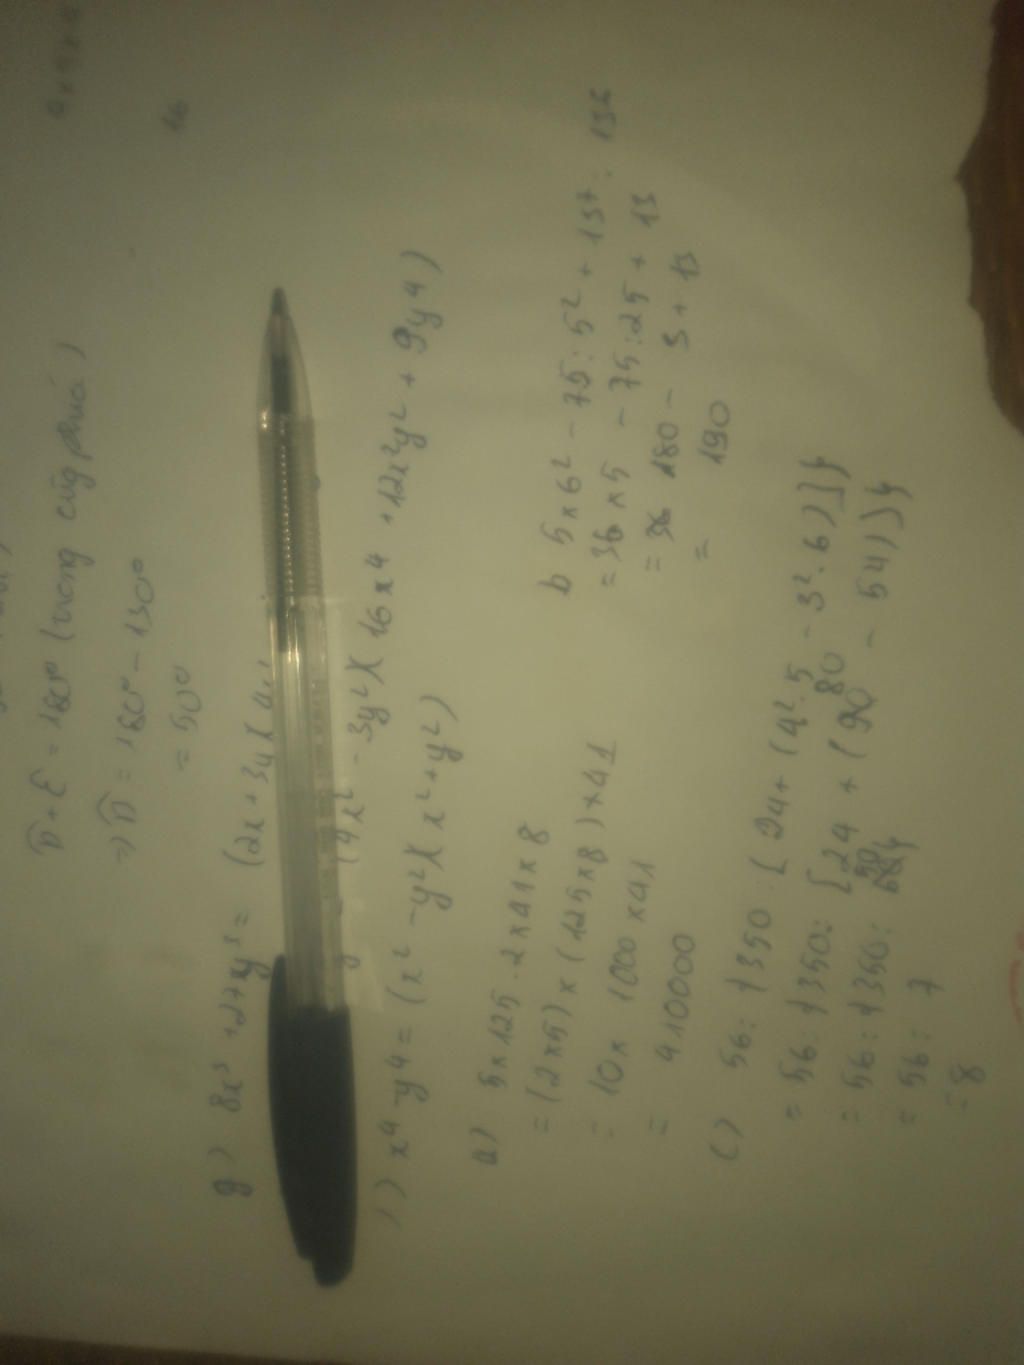 D̂ + Ê = 180° (trong cùg phía)
=) D̂ = 180° - 130°
= 50°
16
g) 8x³ + 27y³ = (2x + 3y)(4
(4x² - 3y²)(16x⁴ + 12x²y² + 9y⁴)
) x⁴ - y⁴ = (x² - y²)(x² + y²)
a) 5 x 125 . 2 x 41 x 8
= (2 x 5) x (125 x 8) x 41
= 10 x 1000 x 41
= 410000
b 5 x 6² - 75 : 5² + 137 :
= 36 x 5 - 75 : 25 + 13
= 180 - 3 + 13
= 190
c) 56 : {350 : [24 + (4².5 - 3².6)]}
= 56 : {350 : [24 + (80 - 54)]}
= 56 : {350 : 50}
= 56 : 7
= 8